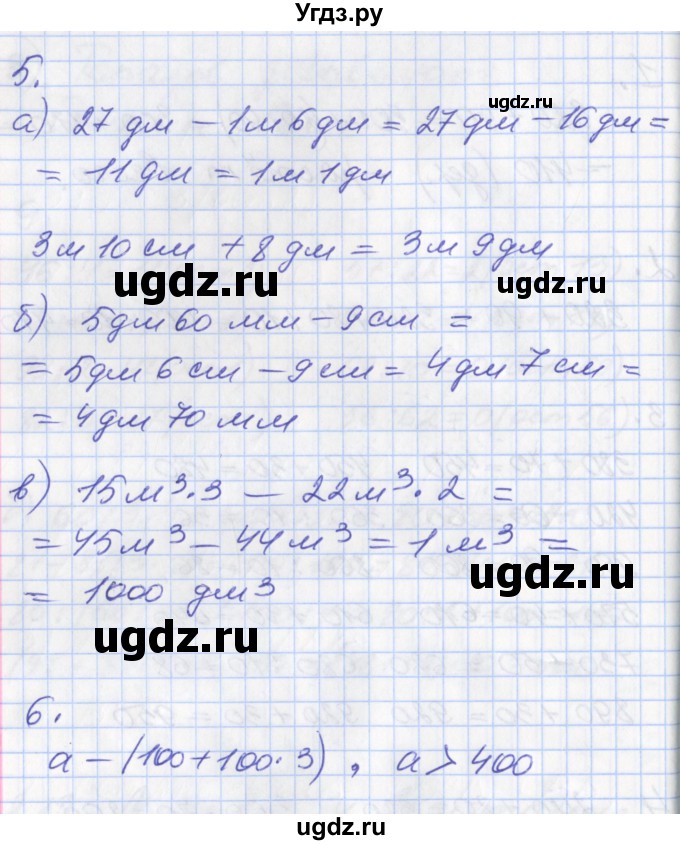 Угдз.ру
5.
а) 27 дм - 1 м 6 дм = 27 дм - 16 дм =
= 11 дм = 1 м 1 дм
3 м 10 см + 8 дм = 3 м 9 дм
б) 5 дм 60 мм - 9 см =
= 5 дм 6 см - 9 см = 4 дм 7 см =
= 4 дм 70 мм
в) 15 м³ · 3 - 22 м³ · 2 =
= 45 м³ - 44 м³ = 1 м³ =
= 1000 дм³
6.
а - (100 + 100 · 3), а > 400
ugdz.ru
ugdz.ru
ugdz.ru
ugdz.ru
ugdz.ru